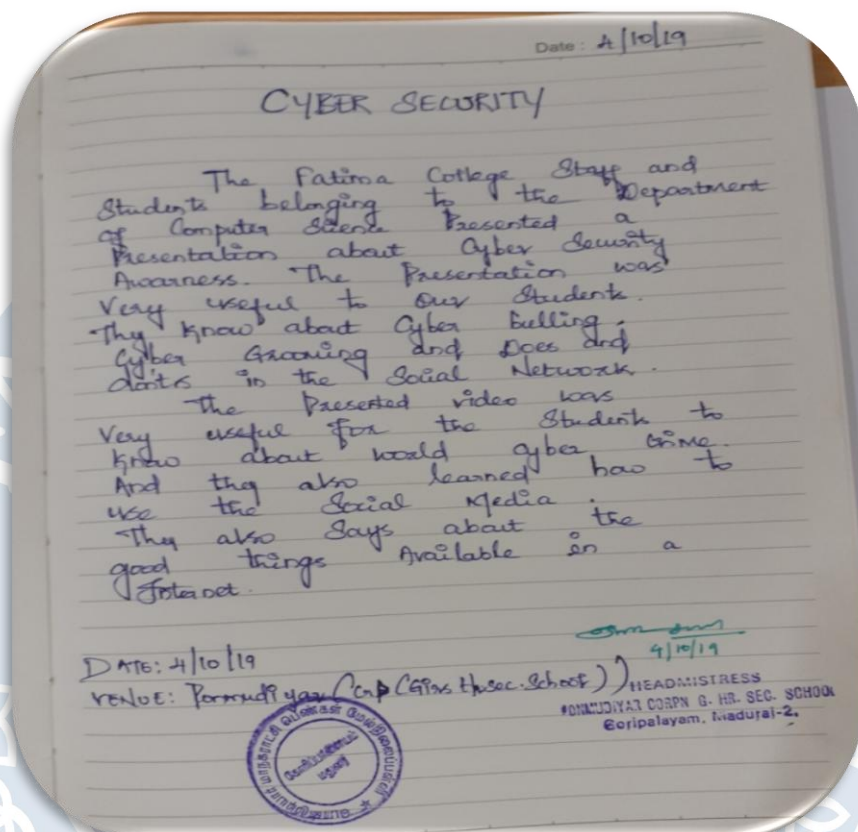 Date : 4/10/19
CYBER SECURITY
The Fatima College Staff and
Students belonging to the Department
of Computer Science Presented a
Presentation about Cyber Security
Awarness. The Presentation was
Very useful to our Students.
They know about Cyber Bulling,
Cyber Grooming and Does and
dont's in the Social Network.
The Presented video was
Very useful for the Students to
know about world cyber crime.
And they also learned how to
use the Social Media.
They also Says about the
good things Available in a
Internet.
4/10/19
DATE: 4/10/19
VENUE: (Girls Hr.sec.School))
HEADMISTRESS
PONMUDIYAR CORPN G. HR. SEC. SCHOOL
Goripalayam, Madurai-2.
கோரிப்பாளையம்
மதுரை